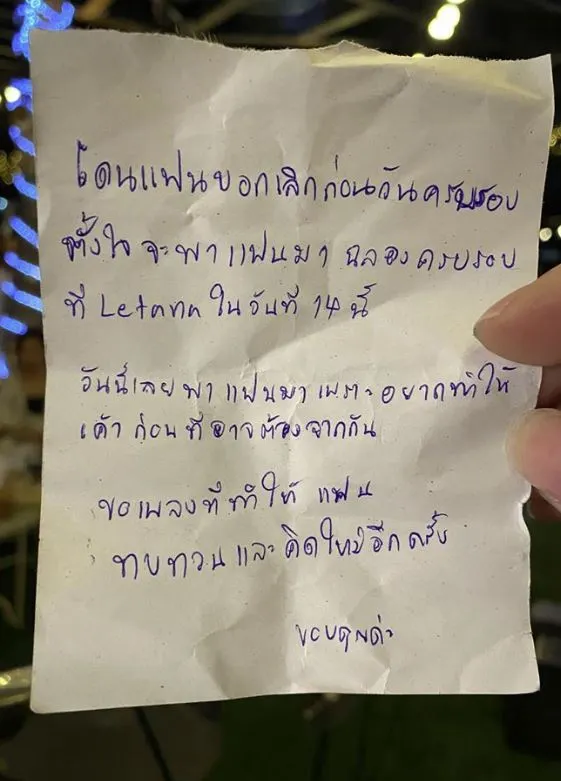 โดนแฟนบอกเลิกก่อนวันครบรอบ
ตั้งใจจะพาแฟนมา ฉลองครบรอบ
ที่ Letana ในวันที่ 14 นี้
วันนี้เลยพาแฟนมาเพราะอยากทำให้
เค้า ก่อนที่อาจต้องจากกัน
ขอเพลงที่ทำให้ แฟน
ทบทวนและคิดใหม่อีกครั้ง
ขอบคุณค่ะ